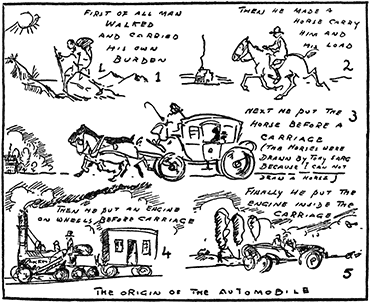 FIRST OF ALL MAN
WALKED
AND CARRIED
HIS OWN
BURDEN
1
THEN HE MADE A
HORSE CARRY
HIM AND
HIS LOAD
2
NEXT HE PUT THE
3
HORSE BEFORE A
CARRIAGE
(THE HORSES WERE
DRAWN BY TONY SARG
BECAUSE I CAN NOT
DRAW A HORSE)
THEN HE PUT AN ENGINE
ON WHEELS BEFORE CARRIAGE
4
FINALLY HE PUT THE
ENGINE INSIDE THE
CARRIAGE
5
THE ORIGIN OF THE AUTOMOBILE